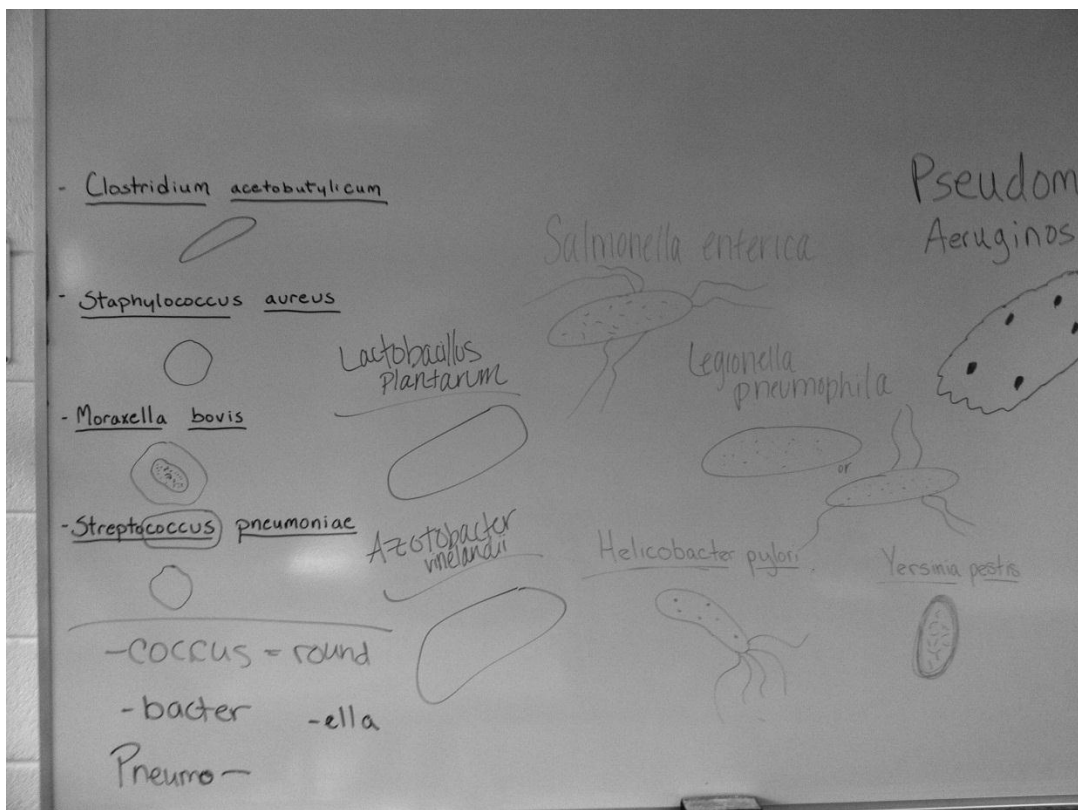 - Clostridium acetobutylicum
- Staphylococcus aureus
- Moraxella bovis
- Streptococcus pneumoniae
- coccus = round
- bacter -ella
Pneumo -
Lactobacillus
plantarum
Azotobacter
vinelandii
Salmonella enterica
Legionella
pneumophila
or
Helicobacter pylori
Yersinia pestis
Pseudom
Aeruginos